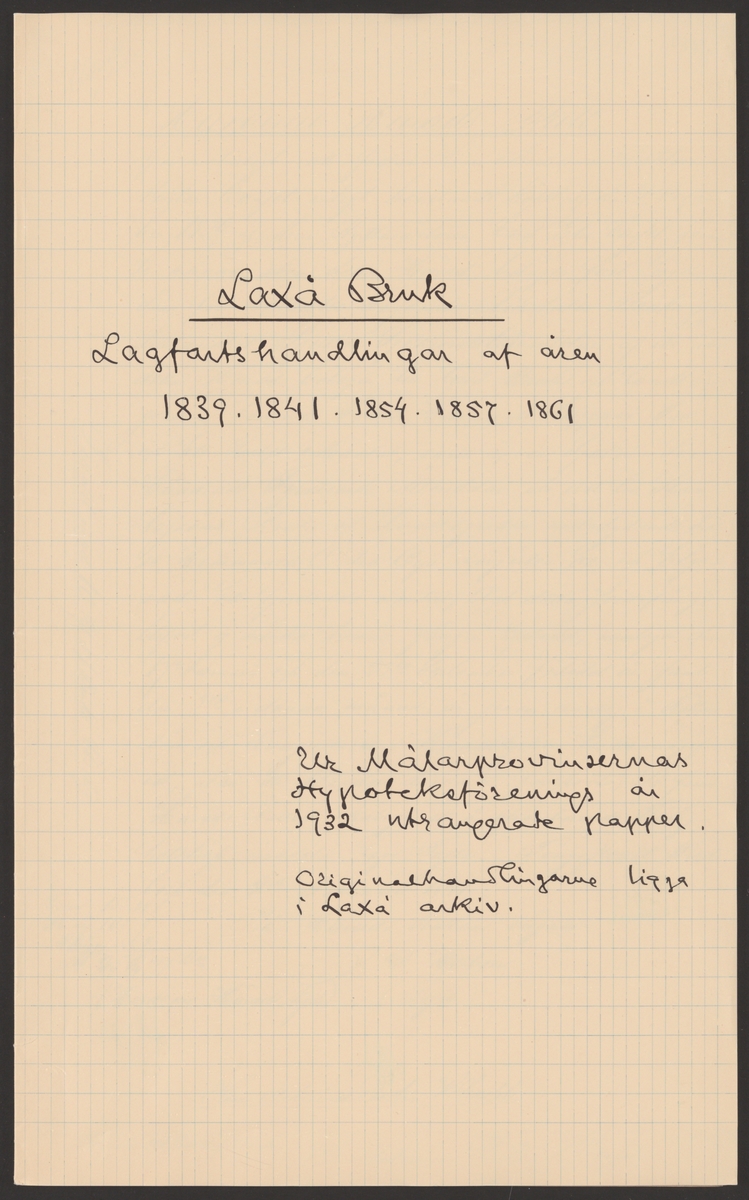 Laxå Bruk
Lagfartshandlingar af åren
1839. 1841. 1854. 1857. 1861
Ur Mälarprovinsernas
Hypoteksförenings år
1932 utrangerade papper.
Originalhandlingarne ligga
i Laxå arkiv.